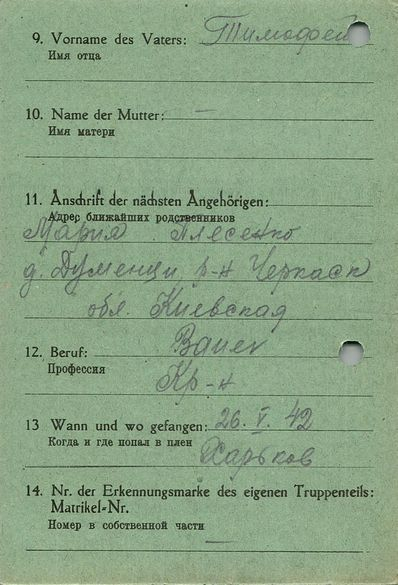 9. Vorname des Vaters: Тимофей
Имя отца
10. Name der Mutter: —
Имя матери
11. Anschrift der nächsten Angehörigen:
Адрес ближайших родственников
Мария Плесенко
д. Думенци р-н Черкаск
обл. Киевская
12. Beruf: Bauer
Профессия Кр-н
13 Wann und wo gefangen: 26. V. 42
Когда и где попал в плен Харьков
14. Nr. der Erkennungsmarke des eigenen Truppenteils:
Matrikel-Nr.
Номер в собственной части —